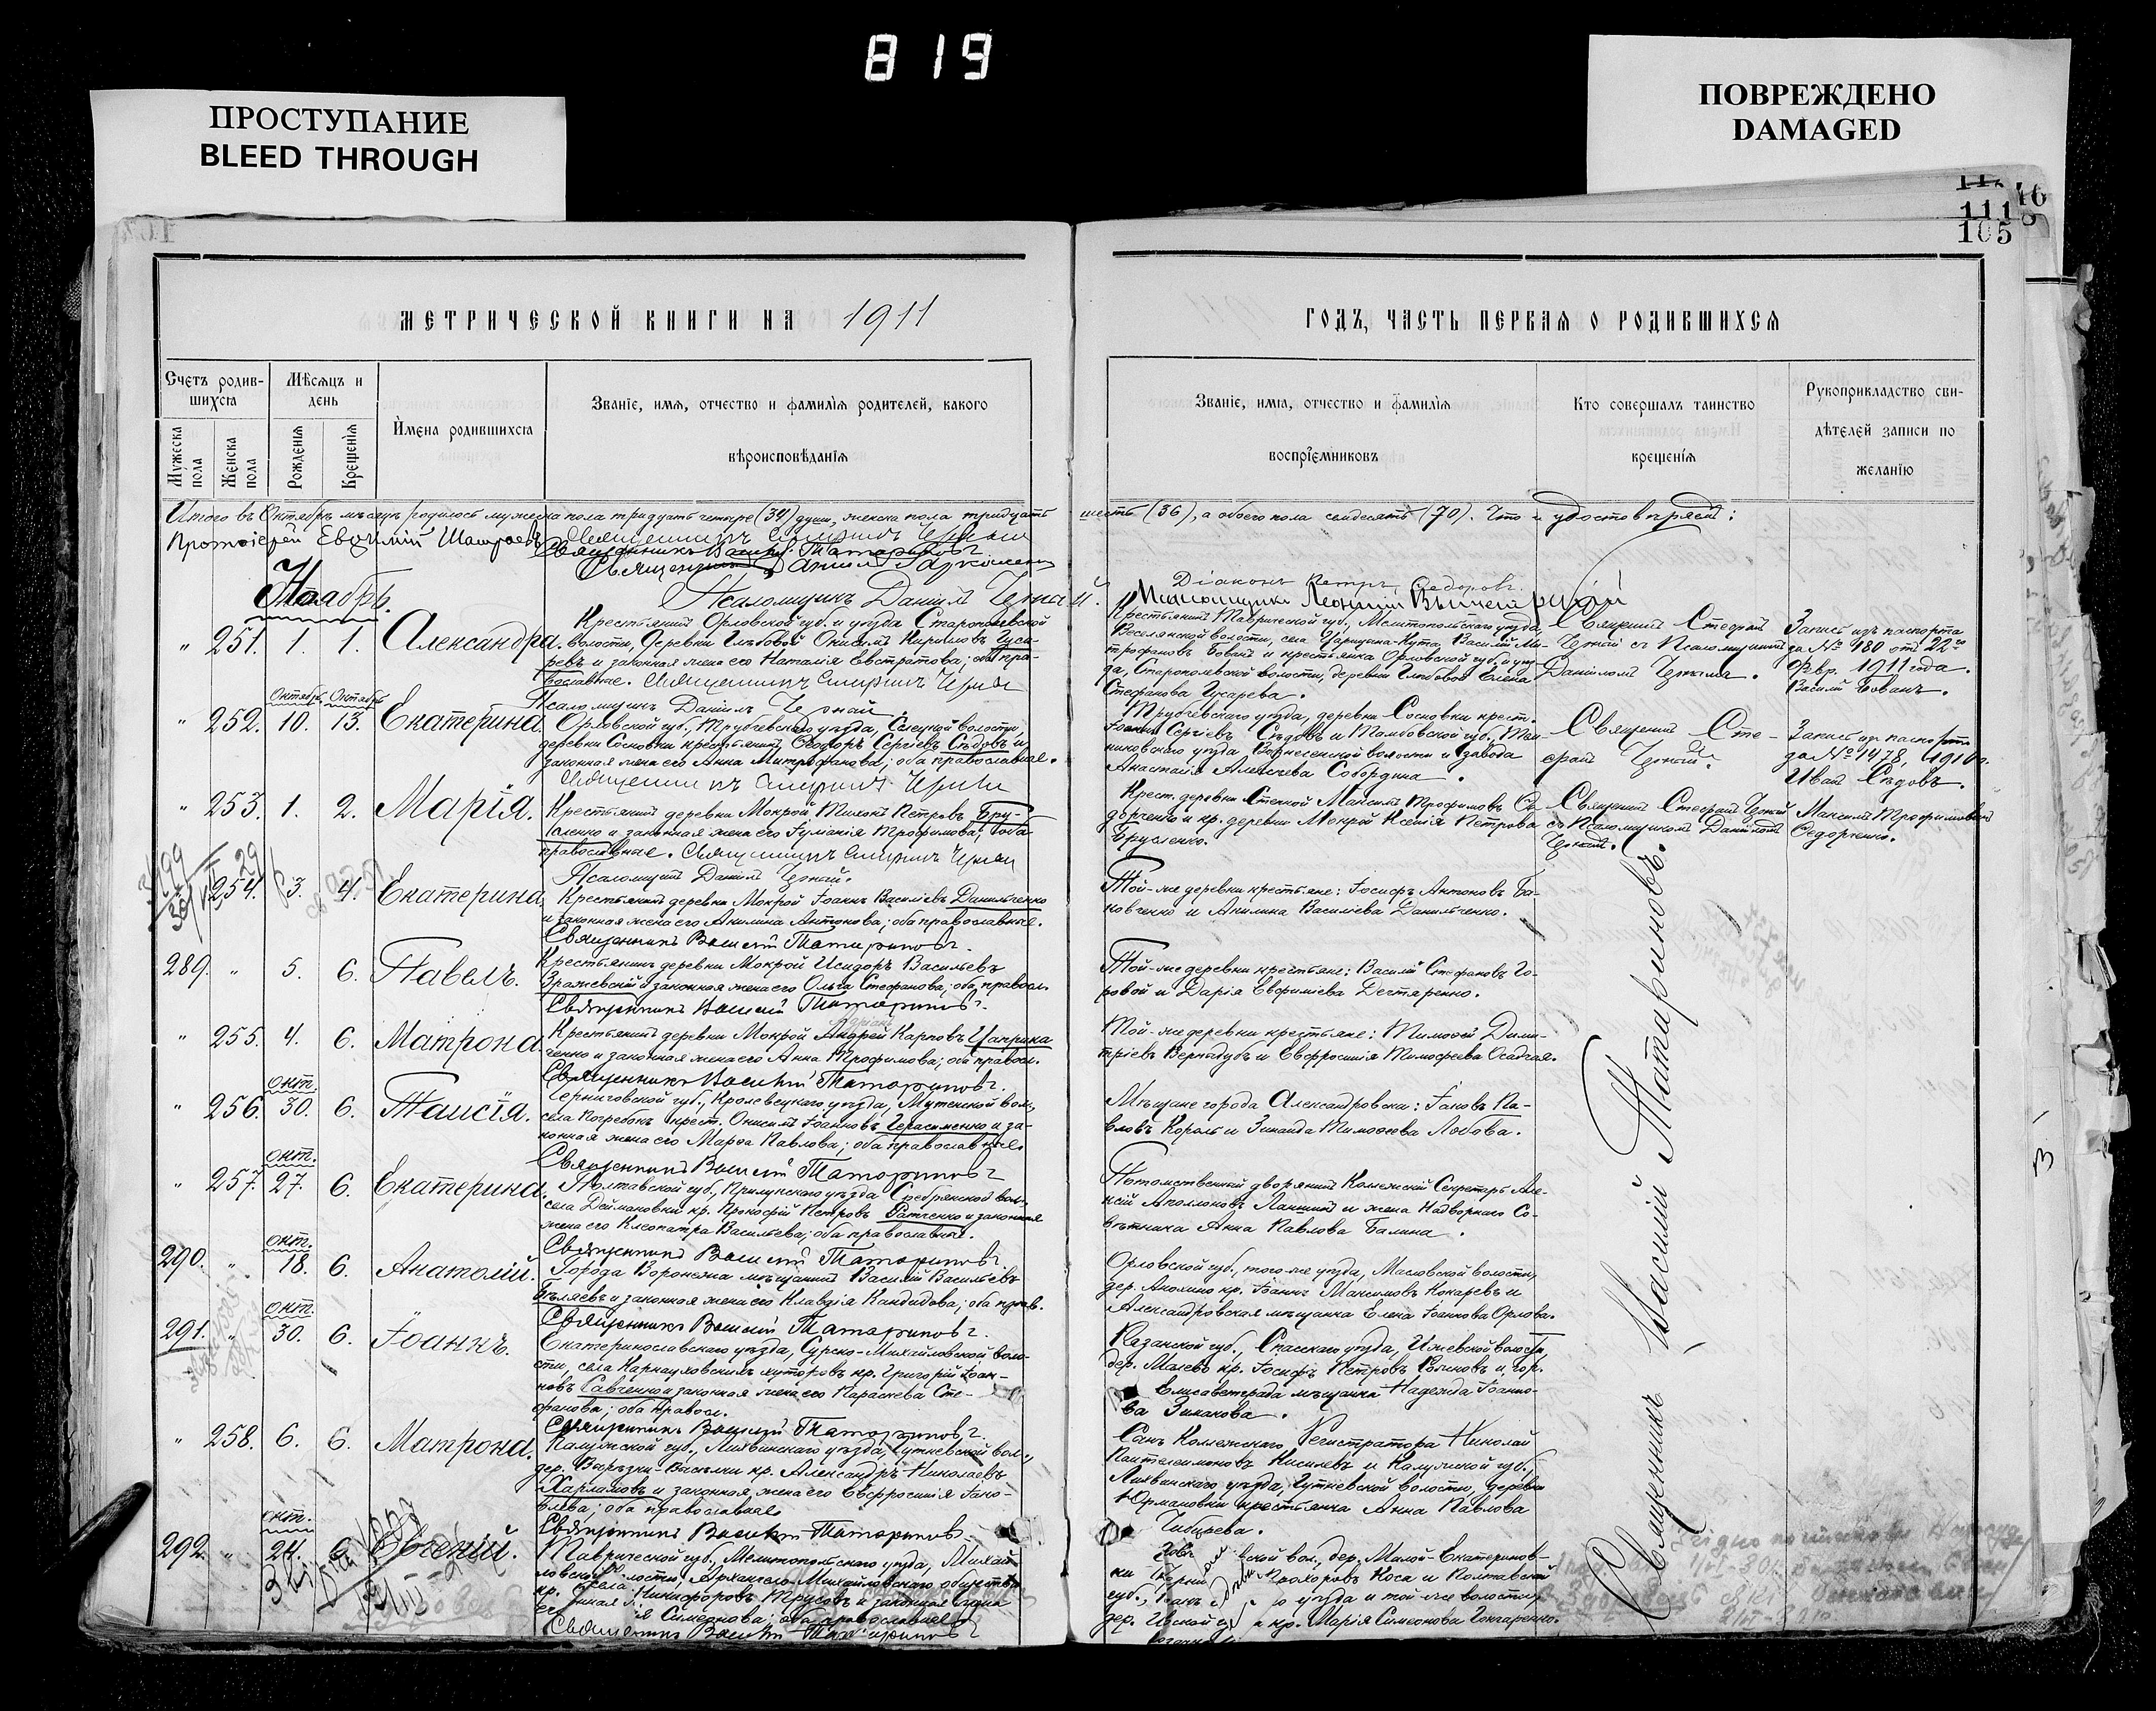 819
ПРОСТУПАНИЕ
BLEED THROUGH
ПОВРЕЖДЕНО
DAMAGED
111
105
МЕТРИЧЕСКОЙ КНИГИ НА 1911
ГОДЪ, ЧАСТЬ ПЕРВАЯ О РОДИВШИХСЯ
Счетъ родив-
шихся
Мужеска пола
Женска пола
Мѣсяцъ и
день
Рожденія
Крещенія
Имена родившихся
Званіе, имя, отчество и фамилія родителей, какого
вѣроисповѣданія
Званіе, имя, отчество и фамилія
воспріемниковъ
Кто совершалъ таинство
крещенія
Рукоприкладство сви-
дѣтелей записи по
желанію
Итого въ Октябрѣ мѣсяцѣ родилось мужеска пола тридцать четыре (34) души, женска пола тридцать шесть (36), а обоего пола семдесятъ (70). Что и удостовѣряемъ:
Протоіерей Евѳимій
Священникъ Василій Татариновъ
Священникъ Даніил
Діаконъ Петръ Федоровъ
Ноябрь.
Псаломщикъ Даніилъ Черный.
" 251. 1. 1. Александра.
Крестьянинъ Орловской губ. и уѣзда Старопольской
волости, деревни Глѣбовой Онисимъ Кириловъ Гуса-
ревъ и законная жена его Наталія Евстратова; оба пра-
вославные.
Крестьянинъ Таврической губ., Мелитопольскаго уѣзда,
Веселянской волости, села Царицына-Кута, Василій Ми-
трофановъ Бованъ и крестьянка Орловской губ. и уѣз-
да, Старопольской волости, деревни Глѣбовой Елена
Стефанова Гусарева.
Священникъ Стефанъ
Черный съ Псаломщикомъ
Даніиломъ Чернымъ.
Запись изъ паспорта
за № 980 отъ 22го
февр. 1911 года.
Василій Бованъ.
Псаломщикъ Даніилъ Черный.
Октябрь Октябрь
" 252. 10. 13. Екатерина.
Орловской губ., Трубчевскаго уѣзда, Селецкой волости,
деревни Сосновки крестьянинъ Ѳеодоръ Сергіевъ Сѣдовъ и
законная жена его Анна Митрофанова; оба православные.
Трубчевскаго уѣзда, деревни Сосновки крест.
Іоаннъ Сергіевъ Сѣдовъ и Тамбовской губ., Тем-
никовскаго уѣзда, Вознесенской волости и завода
Анастасія Алексѣева Собордина.
Священникъ Сте-
фанъ Черный.
Запись изъ паспорта
за № 1478, 1910 г.
Иванъ Сѣдовъ.
" 253. 1. 2. Марія.
Крестьянинъ деревни Мокрой Тихонъ Петровъ Бру-
сленко и законная жена его Гуліанія Трофимова; оба
православные.
Крест. деревни Степной Максимъ Трофимовъ Ѳе-
дорченко и кр. деревни Мокрой Ксенія Петрова
Брусленко.
Священникъ Стефанъ Черный
съ Псаломщикомъ Даніиломъ
Чернымъ.
Максимъ Трофимовъ
Федорченко.
Псаломщикъ Даніилъ Черный.
" 254. 3. 4. Екатерина.
Крестьянинъ деревни Мокрой Іоаннъ Василіевъ Данильченко
и законная жена его Акилина Антонова; оба православные.
Священникъ Василій Татариновъ.
Той-же деревни крестьяне: Іосифъ Антоновъ Ба-
ковченко и Акилина Василіева Данильченко.
289. " 5. 6. Павелъ.
Крестьянинъ деревни Мокрой Исидоръ Васильевъ
Зражевскій и законная жена его Ольга Стефанова; оба правосл.
Священникъ Василій Татариновъ.
Той-же деревни крестьяне: Василій Стефановъ Го-
ровой и Дарія Евфиміева Дегтяренко.
" 255. 4. 6. Матрона.
Крестьянинъ деревни Мокрой Андрей Карповъ Цаприка
ченко и законная жена его Анна Трофимова; оба правосл.
Священникъ Василій Татариновъ.
Той-же деревни крестьяне: Тимоѳей Дими-
тріевъ Вернидубъ и Евфросинія Тимофеева Осадчая.
окт.
" 256. 30. 6. Таисія.
Черниговской губ., Кролевецкаго уѣзда, Мутинской вол.,
села Погребокъ крест. Онисимъ Іоанновъ Герасименко и за-
конная жена его Марѳа Павлова; оба православные.
Священникъ Василій Татариновъ
Мѣщане города Александровска: Іаковъ Па-
вловъ Король и Зинаида Тимоѳеева Лобова.
окт.
" 257. 27. 6. Екатерина.
Полтавской губ., Прилукскаго уѣзда Сребрянской вол.,
села Деймановки кр. Прокофій Петровъ Ратченко и законная
жена его Клеопатра Васильева; оба православные.
Священникъ Василій Татариновъ.
Потомственный дворянинъ Коллежскій Секретарь Але-
ксій Аполлоновъ Ланшинъ и жена Надворнаго Со-
вѣтника Анна Павлова Балина.
окт.
290. " 18. 6. Анатолій.
Города Воронежа мѣщанинъ Василій Васильевъ
Бѣляевъ и законная жена его Клавдія Кандидова; оба прав.
Священникъ Василій Татариновъ.
Орловской губ., того-же уѣзда, Масловской волости,
дер. Анохино кр. Іоаннъ Максимовъ Кокаревъ и
Александровская мѣщанка Елена Іоаннова Орлова.
окт.
291. " 30. 6. Іоаннъ.
Екатеринославскаго уѣзда, Сурско-Михайловской воло-
сти, села Карнауховскихъ хуторовъ кр. Григорій Іоан-
новъ Савченко и законная жена его Параскева Сте-
фанова; оба правосл.
Священникъ Василій Татариновъ.
Казанской губ., Спасскаго уѣзда, волости,
дер. Малево кр. Іосифъ Петровъ и гор.
Елисаветграда мѣщанка Надежда Іоанно-
ва Зимакова.
" 258. 6. 6. Матрона.
Калужской губ., Лихвинскаго уѣзда, вол.,
дер. кр. Александръ Николаевъ
Харламовъ и законная жена его Евфросинія Іако-
влева; оба православные
Священникъ Василій Татариновъ
Санъ Коллежскаго Регистратора Николай
Пантелеимоновъ Киселевъ и Калужской губ.,
Лихвинскаго уѣзда, волости, деревни
крестьянка Анна Павлова
Чибирева.
окт.
292. " 24. 6. Евгеній.
Таврической губ., Мелитопольскаго уѣзда, Михай-
ловской волости Архангело-Михайловскаго общества
кр. Никифоровъ Трусовъ и законная жена
его Симеонова; оба православные
Священникъ Василій Татариновъ
вской вол., дер. Малой-Екатеринов-
ки Прохоровъ Коса и Полтавской
губ., уѣзда и той-же волости
дер. кр. Марія Симеонова Гончаренко.
Священникъ Василій Татариновъ.